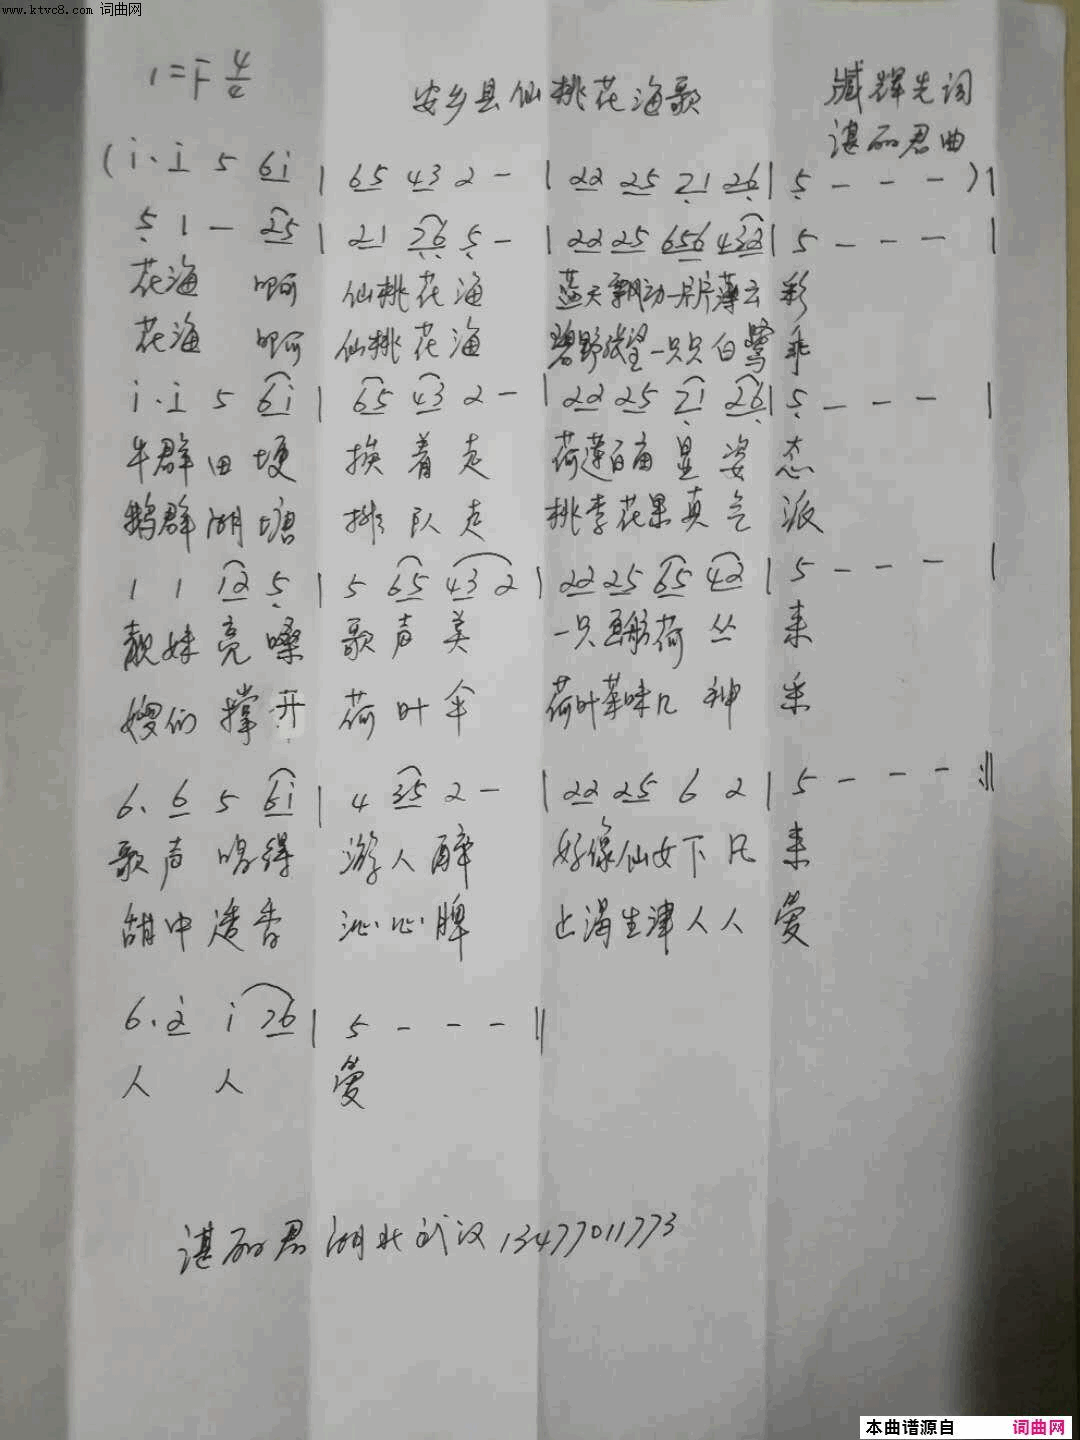 www.ktvc8.com 词曲网
1=F 4/4
安乡县仙桃花海歌
臧辉先词
谌丽君曲
(i·i 5 6i | 65 43 2 - | 22 25 21 26 | 5 - - - )|
5 1 - 25 | 21 26 5 - | 22 25 656 432 | 5 - - - |
花海 啊 仙桃花海 蓝天飘动一片片薄云彩
花海 啊 仙桃花海 碧野张望一只只白鹭乖
i·i 5 6i | 65 43 2 - | 22 25 21 26 | 5 - - - |
牛群田埂 挨着走 荷莲百亩显姿态
鹅群湖塘 排队走 桃李花果真气派
1 1 12 5 | 5 65 43 2 | 22 25 65 42 | 5 - - - |
靓妹亮嗓 歌声美 一只画舫荷丛来
嫂们撑开 荷叶伞 荷叶茶味凡神采
6·6 5 6i | 4 35 2 - | 22 25 6 2 | 5 - - - :||
歌声唱得 游人醉 好像仙女下凡来
胡中透香 沁心脾 止渴生津人人爱
6·2 i 76 | 5 - - - ||
人 人 爱
谌丽君湖北武汉13477011773
本曲谱源自 词曲网